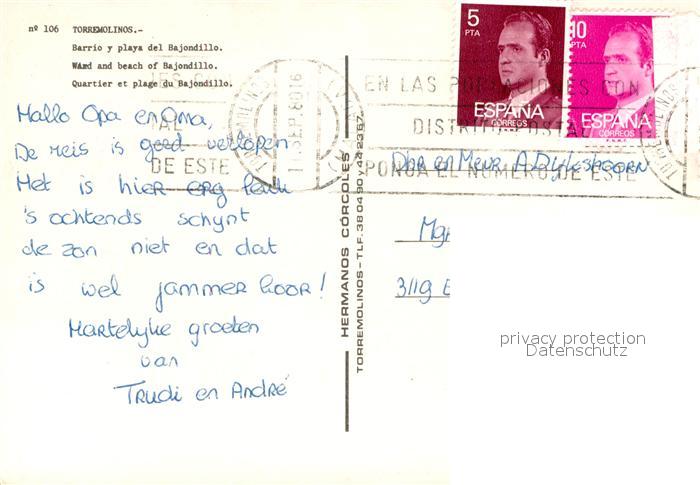 nº 106 TORREMOLINOS.-
Barrio y playa del Bajondillo.
Ward and beach of Bajondillo.
Quartier et plage du Bajondillo.
Hallo Opa en Oma,
De reis is goed verlopen
Het is hier erg leuk
's ochtends schynt
de zon niet en dat
is wel jammer hoor!
Hartelyke groeten
van
Trudi en André
HERMANOS CÓRCOLES
TORREMOLINOS-TLF. 380490 y 442367.
5
PTA
ESPAÑA
CORREOS
10
PTA
ESPAÑA
CORREOS
F.N.M.T.
11. SEP. 80 16
DE ESTE
EN LAS POBLACIONES CON
DISTRITO POSTAL
PONGA EL NUMERO DE ESTE
Dhr en Mevr A
3119
privacy protection
Datenschutz